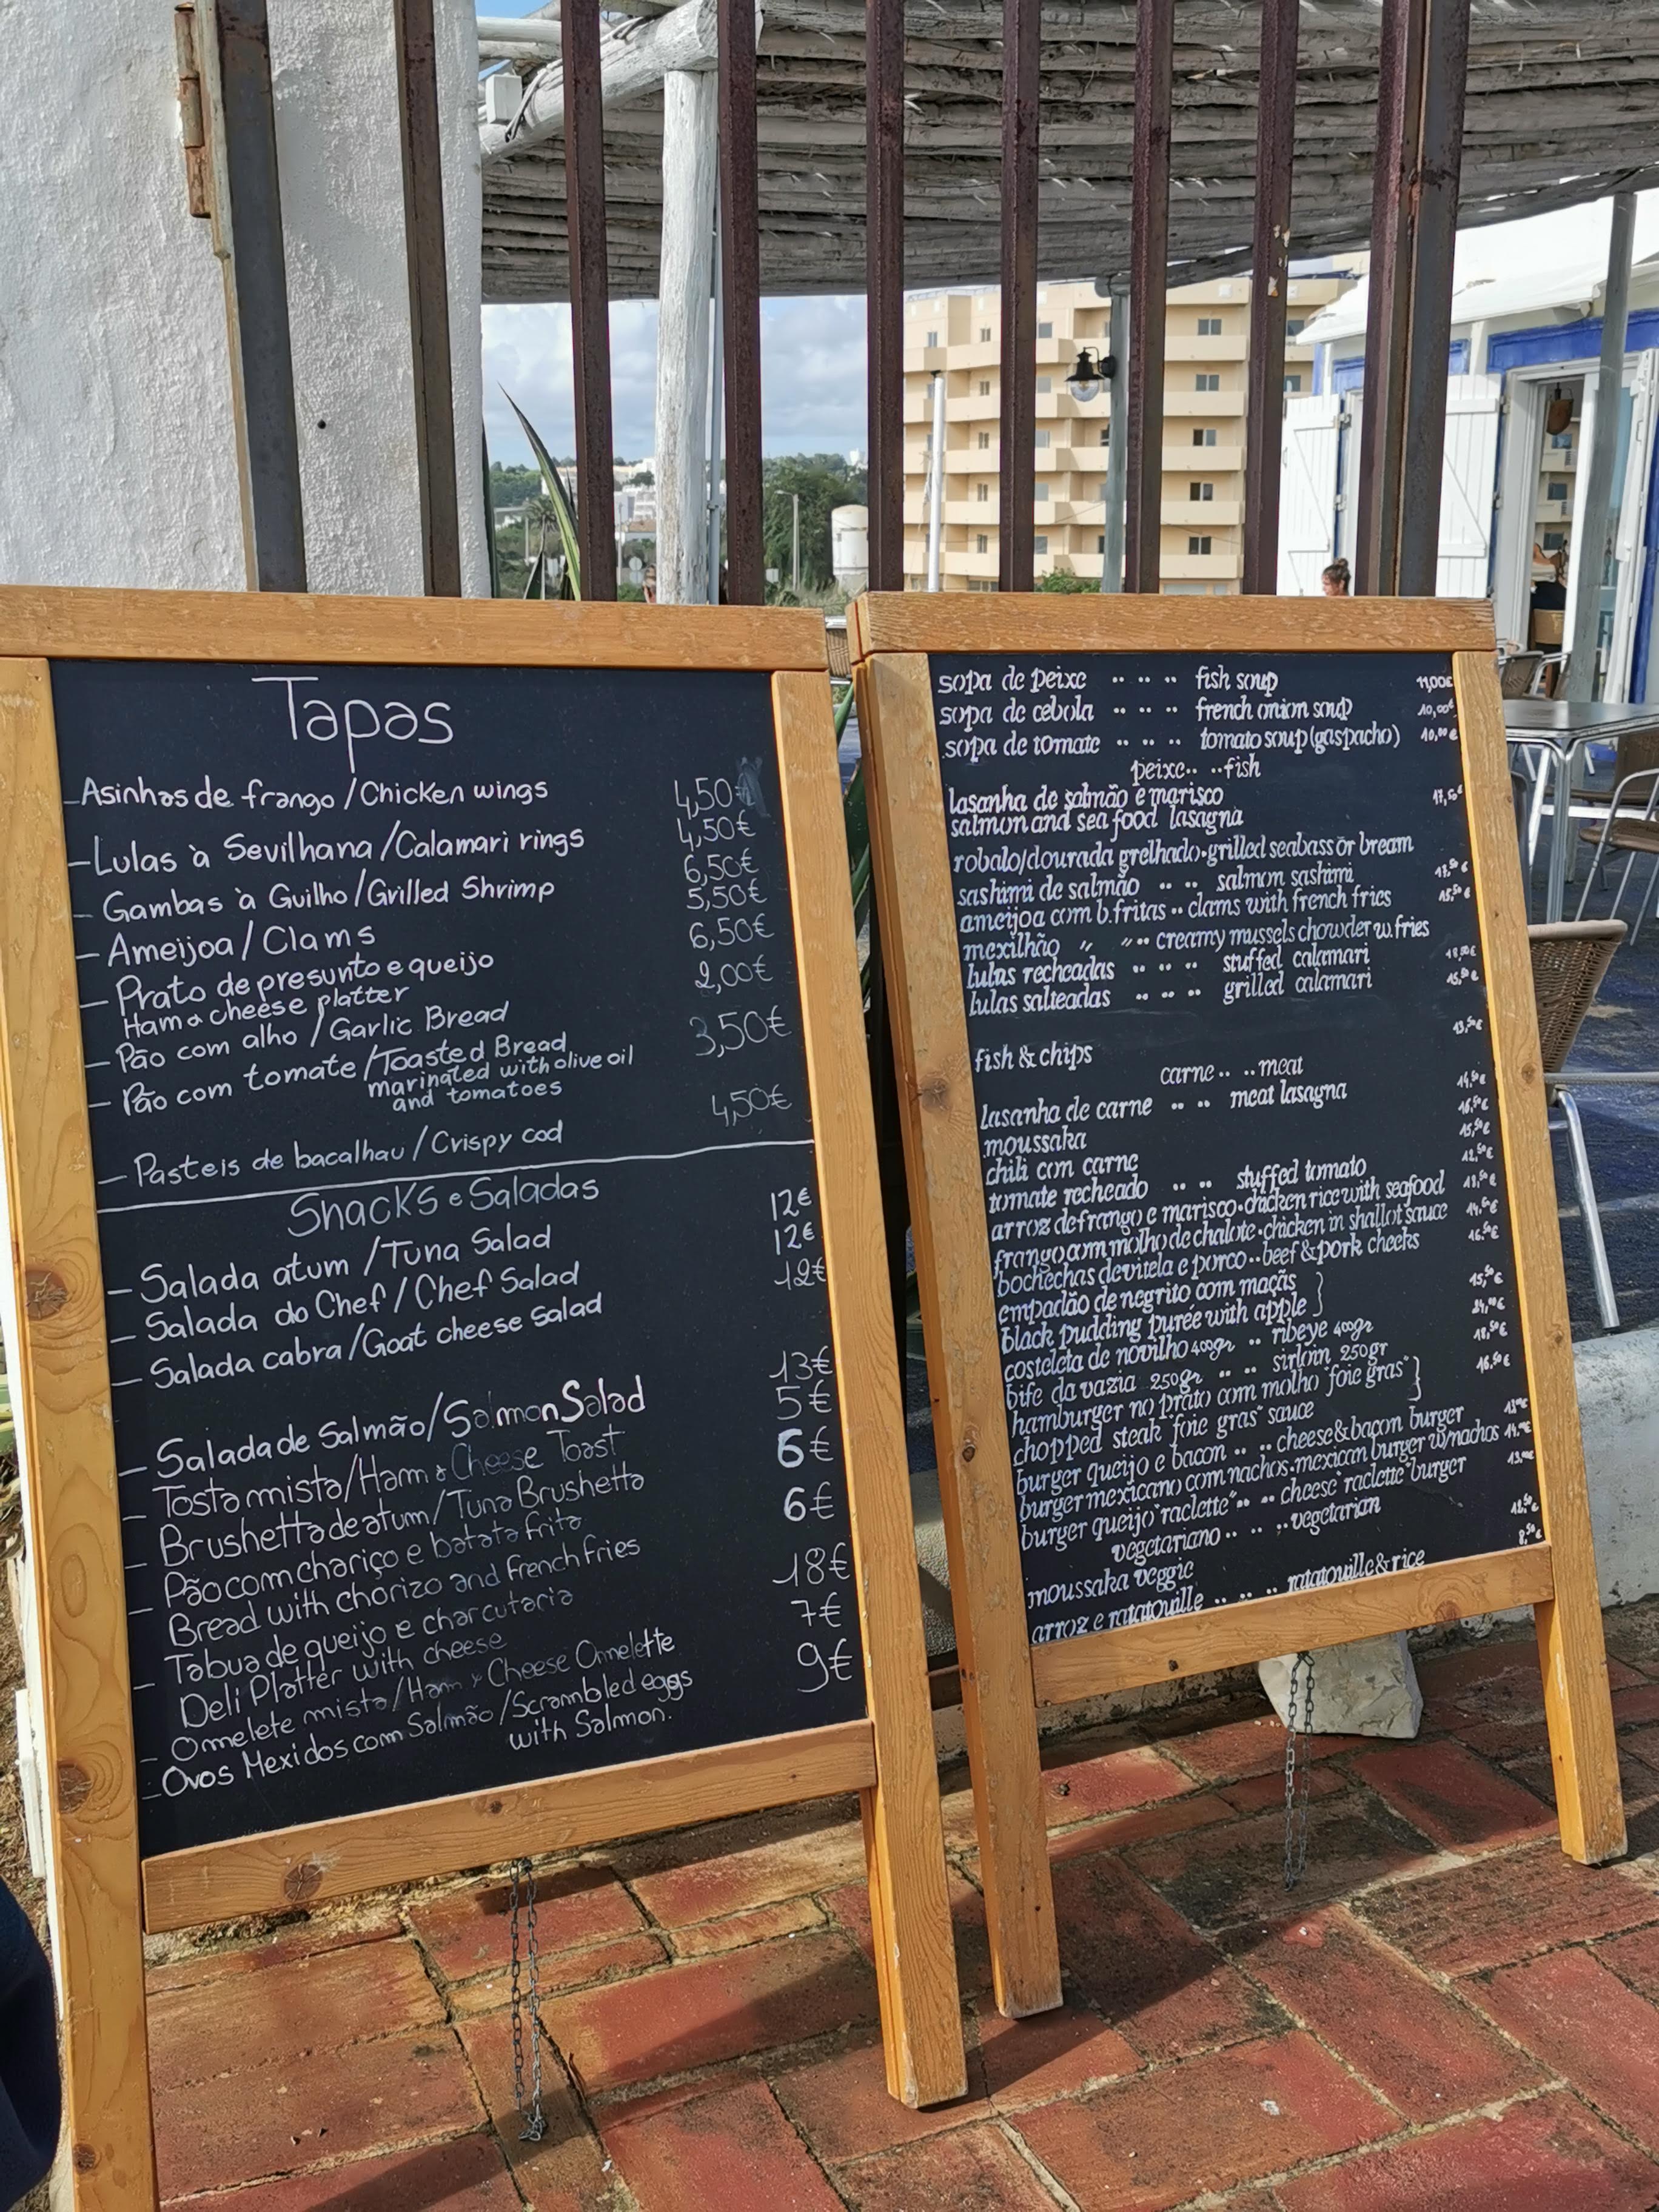 Tapas
- Asinhas de frango / Chicken wings 4,50
- Lulas à Sevilhana / Calamari rings 4,50€
- Gambas à Guilho / Grilled Shrimp 6,50€
- Ameijoa / Clams 5,50€
- Prato de presunto e queijo 6,50€
Ham & cheese platter
- Pão com alho / Garlic Bread 2,00€
- Pão com tomate / Toasted Bread 3,50€
marinated with olive oil
and tomatoes
- Pasteis de bacalhau / Crispy cod 4,50€
Snacks e Saladas
- Salada atum / Tuna Salad 12€
- Salada do Chef / Chef Salad 12€
- Salada cabra / Goat cheese salad 12€
- Salada de Salmão / Salmon Salad 13€
- Tosta mista / Ham & Cheese Toast 5€
- Brushetta de atum / Tuna Brushetta 6€
- Pão com chariço e batata frita 6€
Bread with chorizo and french fries
- Tabua de queijo e charcutaria 18€
Deli Platter with cheese
- Omelete mista / Ham & Cheese Omelette 7€
- Ovos Mexidos com Salmão / Scrambled eggs 9€
with Salmon.
sopa de peixe .. .. .. fish soup 11,00€
sopa de cebola .. .. .. french onion soup 10,00€
sopa de tomate .. .. .. tomato soup (gaspacho) 10,00€
peixe.. ..fish
lasanha de salmão e marisco 17,50€
salmon and sea food lasagna
robalo/dourada grelhado · grilled seabass or bream
sashimi de salmão .. .. salmon sashimi
ameijoa com b.fritas .. clams with french fries
mexilhão " " .. creamy mussels chowder w. fries
lulas recheadas .. .. .. stuffed calamari
lulas salteadas .. .. .. grilled calamari
fish & chips
carne .. .. meat
lasanha de carne .. .. meat lasagna
moussaka
chili con carne
tomate recheado .. .. stuffed tomato
arroz de frango e marisco · chicken rice with seafood
frango com molho de chalote · chicken in shallot sauce
bochechas de vitela e porco .. beef & pork cheeks
empadão de negrito com maçãs }
black pudding purée with apple }
costeleta de novilho 400gr .. ribeye 400gr
bife da vazia 250gr .. .. sirloin 250gr
hamburger no prato com molho "foie gras" }
chopped steak "foie gras" sauce }
burger queijo e bacon .. .. cheese & bacon burger
burger mexicano com nachos · mexican burger w/nachos
burger queijo "raclette" .. .. cheese "raclette" burger
vegetariano .. .. .. vegetarian
moussaka veggie
arroz e ratatouille .. .. .. ratatouille & rice